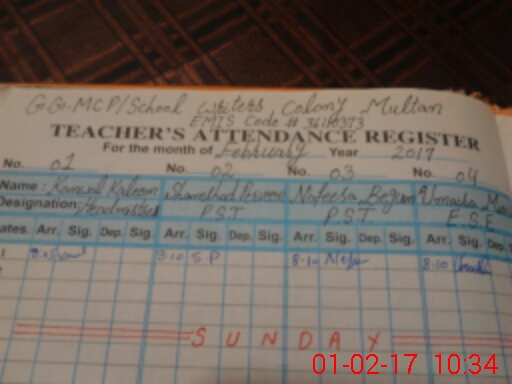 G.G.MCP/School Writers Colony Multan
EMIS Code #
TEACHER'S ATTENDANCE REGISTER
For the month of February Year 2017
No. 01 No. 02 No. 03 No. 04
Name: Kanwal Kaleem Nafeesa Begum
Designation: Headmistress P.S.T P.S.T E.S.E
ates. Arr. Sig. Dep. Sig. Arr. Sig. Dep. Sig. Arr. Sig. Dep. Sig. Arr. Sig. Dep.
8:10 S.P 8:10 8:10
SUNDAY
01-02-17 10:34